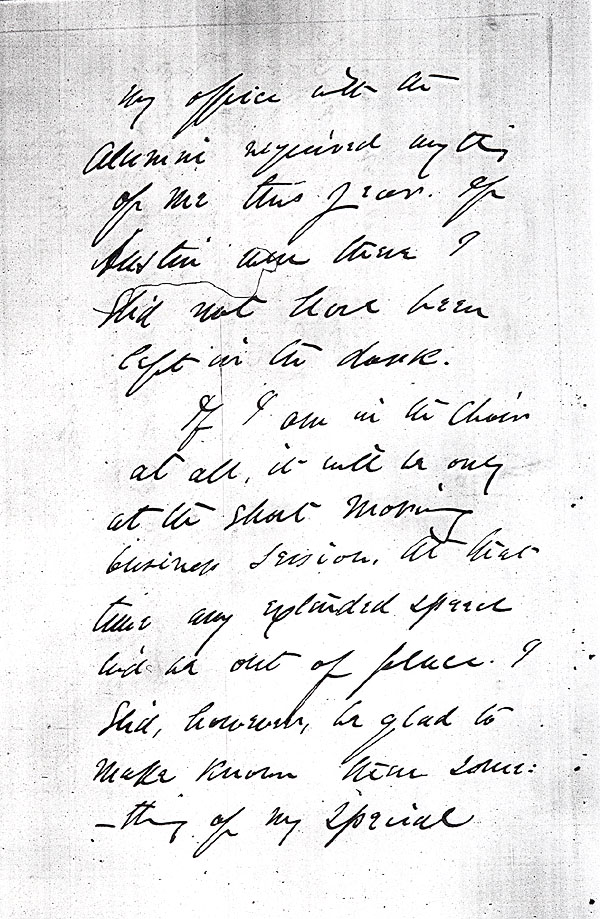 my office with the
Alumni required anything
of me this year. If
Austin were there I
shd not have been
left in the dark.
If I am in the Chair
at all, it will be only
at the short morning
business session. At that
time any extended speech
wd be out of place. I
shd, however, be glad to
make known then some-
-thing of my special